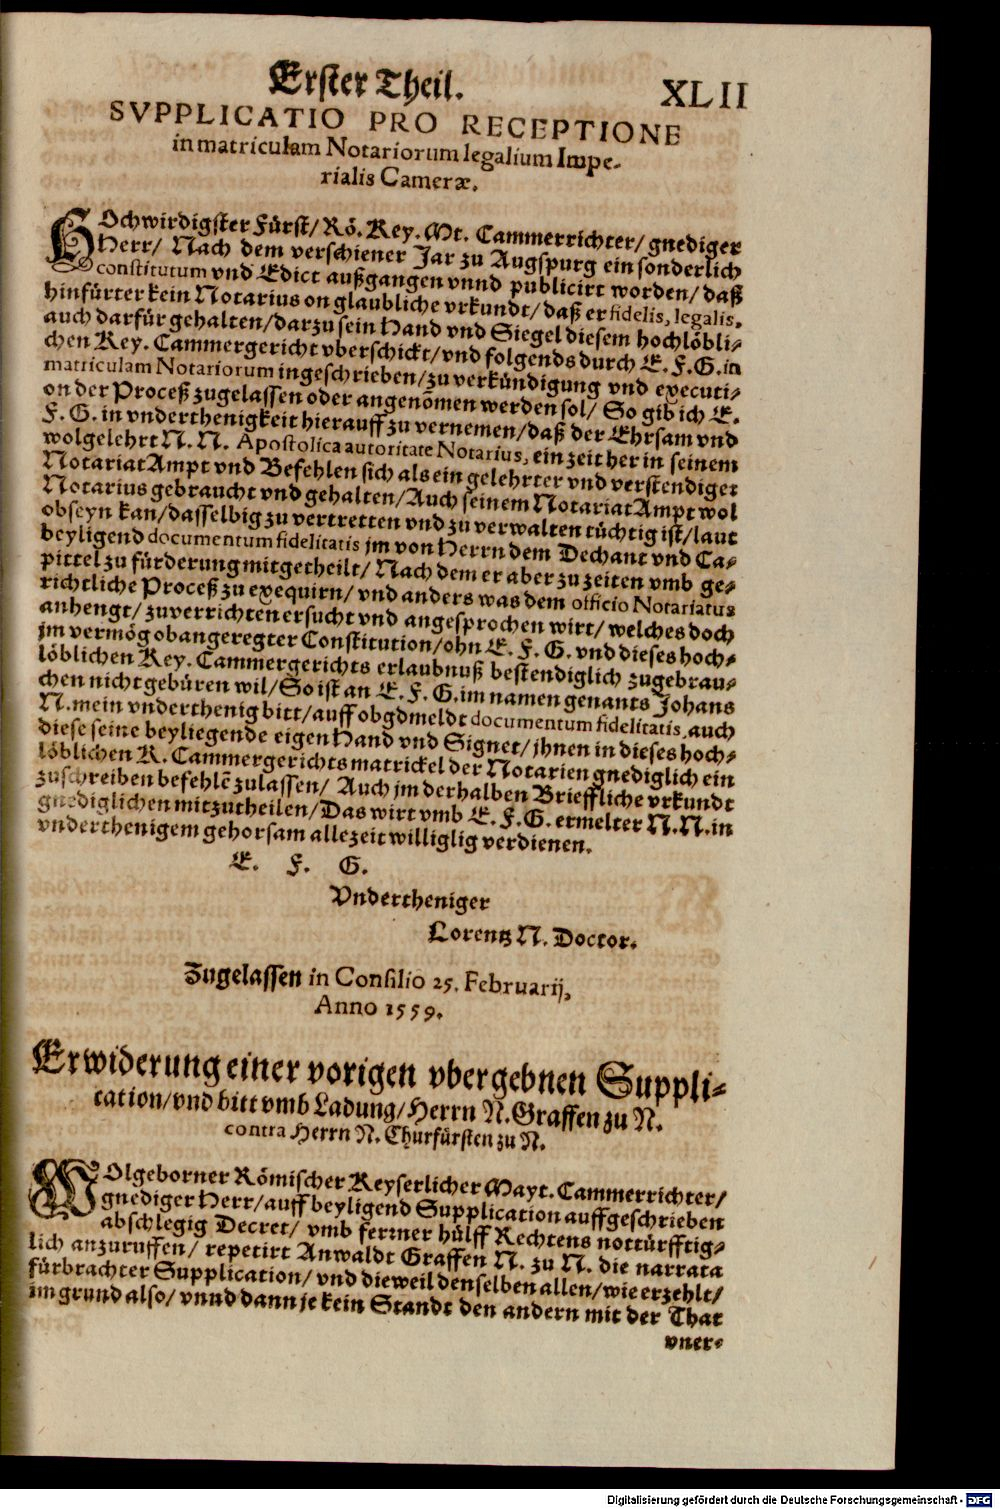 Erster Theil. XLII
SVPPLICATIO PRO RECEPTIONE
in matriculam Notariorum legalium Impe-
rialis Cameræ.
HOchwirdigster Fürst/ Rö. Key. Mt. Cammerrichter/ gnediger
Herr/ Nach dem verschiener Jar zu Augspurg ein sonderlich
constitutum vnd Edict außgangen vnnd publicirt worden/ daß
hinfürter kein Notarius on glaubliche vrkundt/ daß er fidelis, legalis,
auch darfür gehalten/ darzu sein Hand vnd Siegel diesem hochlöbli-
chen Key. Cammergericht vberschickt/ vnd folgends durch E. F. G. in
matriculam Notariorum ingeschrieben/ zu verkündigung vnd executi-
on der Proceß zugelassen oder angenõmen werden sol/ So gib ich E.
F. G. in vnderthenigkeit hierauff zu vernemen/ daß der Ehrsam vnd
wolgelehrt N. N. Apostolica autoritate Notarius, ein zeit her in seinem
Notariat Ampt vnd Befehlen sich als ein gelehrter vnd verstendiger
Notarius gebraucht vnd gehalten/ Auch seinem Notariat Ampt wol
obseyn kan/ dasselbig zu vertretten vnd zu verwalten tüchtig ist/ laut
beyligend documentum fidelitatis jm von Herrn dem Dechant vnd Ca-
pittel zu fürderung mitgetheilt/ Nach dem er aber zu zeiten vmb ge-
richtliche Proceß zu exequirn/ vnd anders was dem officio Notariatus
anhengt/ zuverrichten ersucht vnd angesprochen wirt/ welches doch
jm vermög obangeregter Constitution/ ohn E. F. G. vnd dieses hoch-
löblichen Key. Cammergerichts erlaubnuß bestendiglich zugebrau-
chen nicht gebüren wil/ So ist an E. F. G. im namen genants Johans
N. mein vnderthenig bitt/ auff obgdmeldt documentum fidelitatis, auch
diese seine beyliegende eigen Hand vnd Signet/ jhnen in dieses hoch-
löblichen K. Cammergerichts matrickel der Notarien gnediglich ein
zuschreiben befehlẽ zulassen/ Auch jm derhalben Brieffliche vrkundt
gnediglichen mitzutheilen/ Das wirt vmb E. F. G. ermelter N. N. in
vnderthenigem gehorsam allezeit williglig verdienen.
E. F. G.
Vndertheniger
Lorentz N. Doctor.
Zugelassen in Consilio 25. Februarij,
Anno 1559.
Erwiderung einer vorigen vbergebnen Suppli-
cation/ vnd bitt vmb Ladung/ Herrn N. Graffen zu N.
contra Herrn N. Churfürsten zu N.
WOlgeborner Römischer Keyserlicher Mayt. Cammerrichter/
gnediger Herr/ auff beyligend Supplication auffgeschrieben
abschlegig Decret/ vmb ferrner hülff Rechtens nottürfftig-
lich anzuruffen/ repetirt Anwaldt Graffen N. zu N. die narrata
fürbrachter Supplication/ vnd dieweil denselben allen/ wie erzehlt/
im grund also/ vnnd dann je kein Standt den andern mit der That
vner-
Digitalisierung gefördert durch die Deutsche Forschungsgemeinschaft - DFG